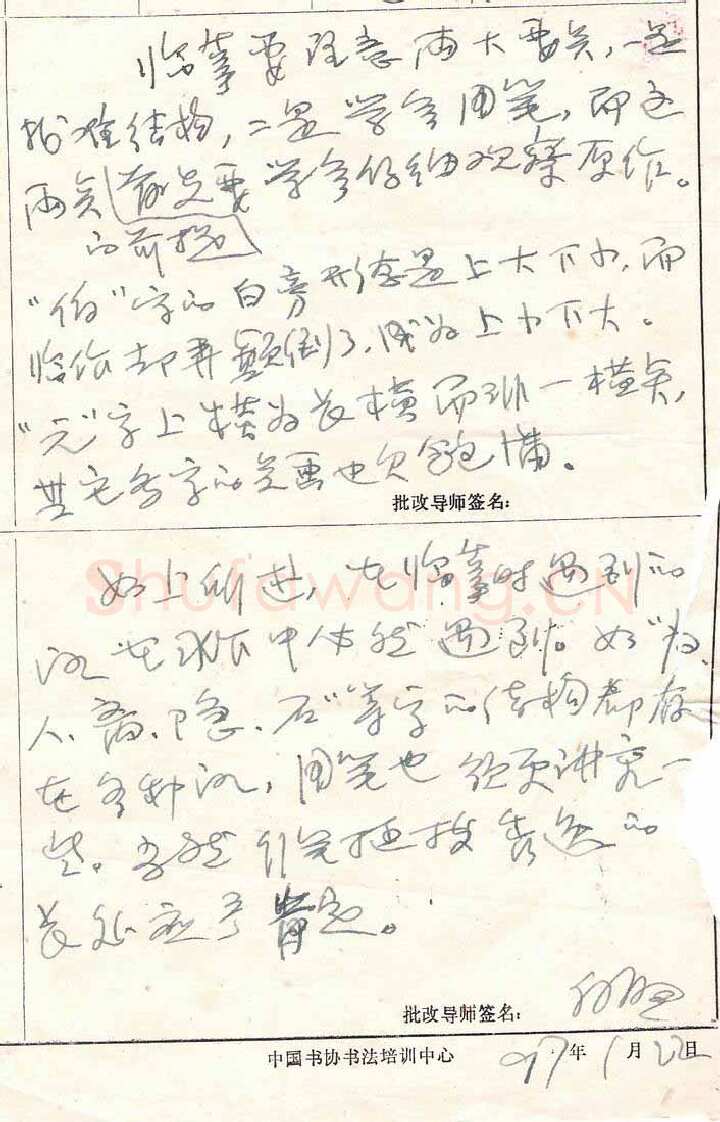 临摹要注意两大要点，一是
找准结构，二是学会用笔，而这
两点的前提首先要学会仔细观察原作。
"伯"字的白旁形态是上大下小，而
临作却弄颠倒了，成为上小下大。
"元"字上横为长横而非一横点，
其它各字的点画也欠饱满。
批改导师签名：
如上所述，在临摹时遇到的
在创作中依然遇到。如"
人、离、隐、石"等字的结构都存
在各种，用笔也须更讲究一
些。当然行笔挺拔 的
长处应予肯定。
批改导师签名：
中国书协书法培训中心
97年1月22日
Shufawang.CN